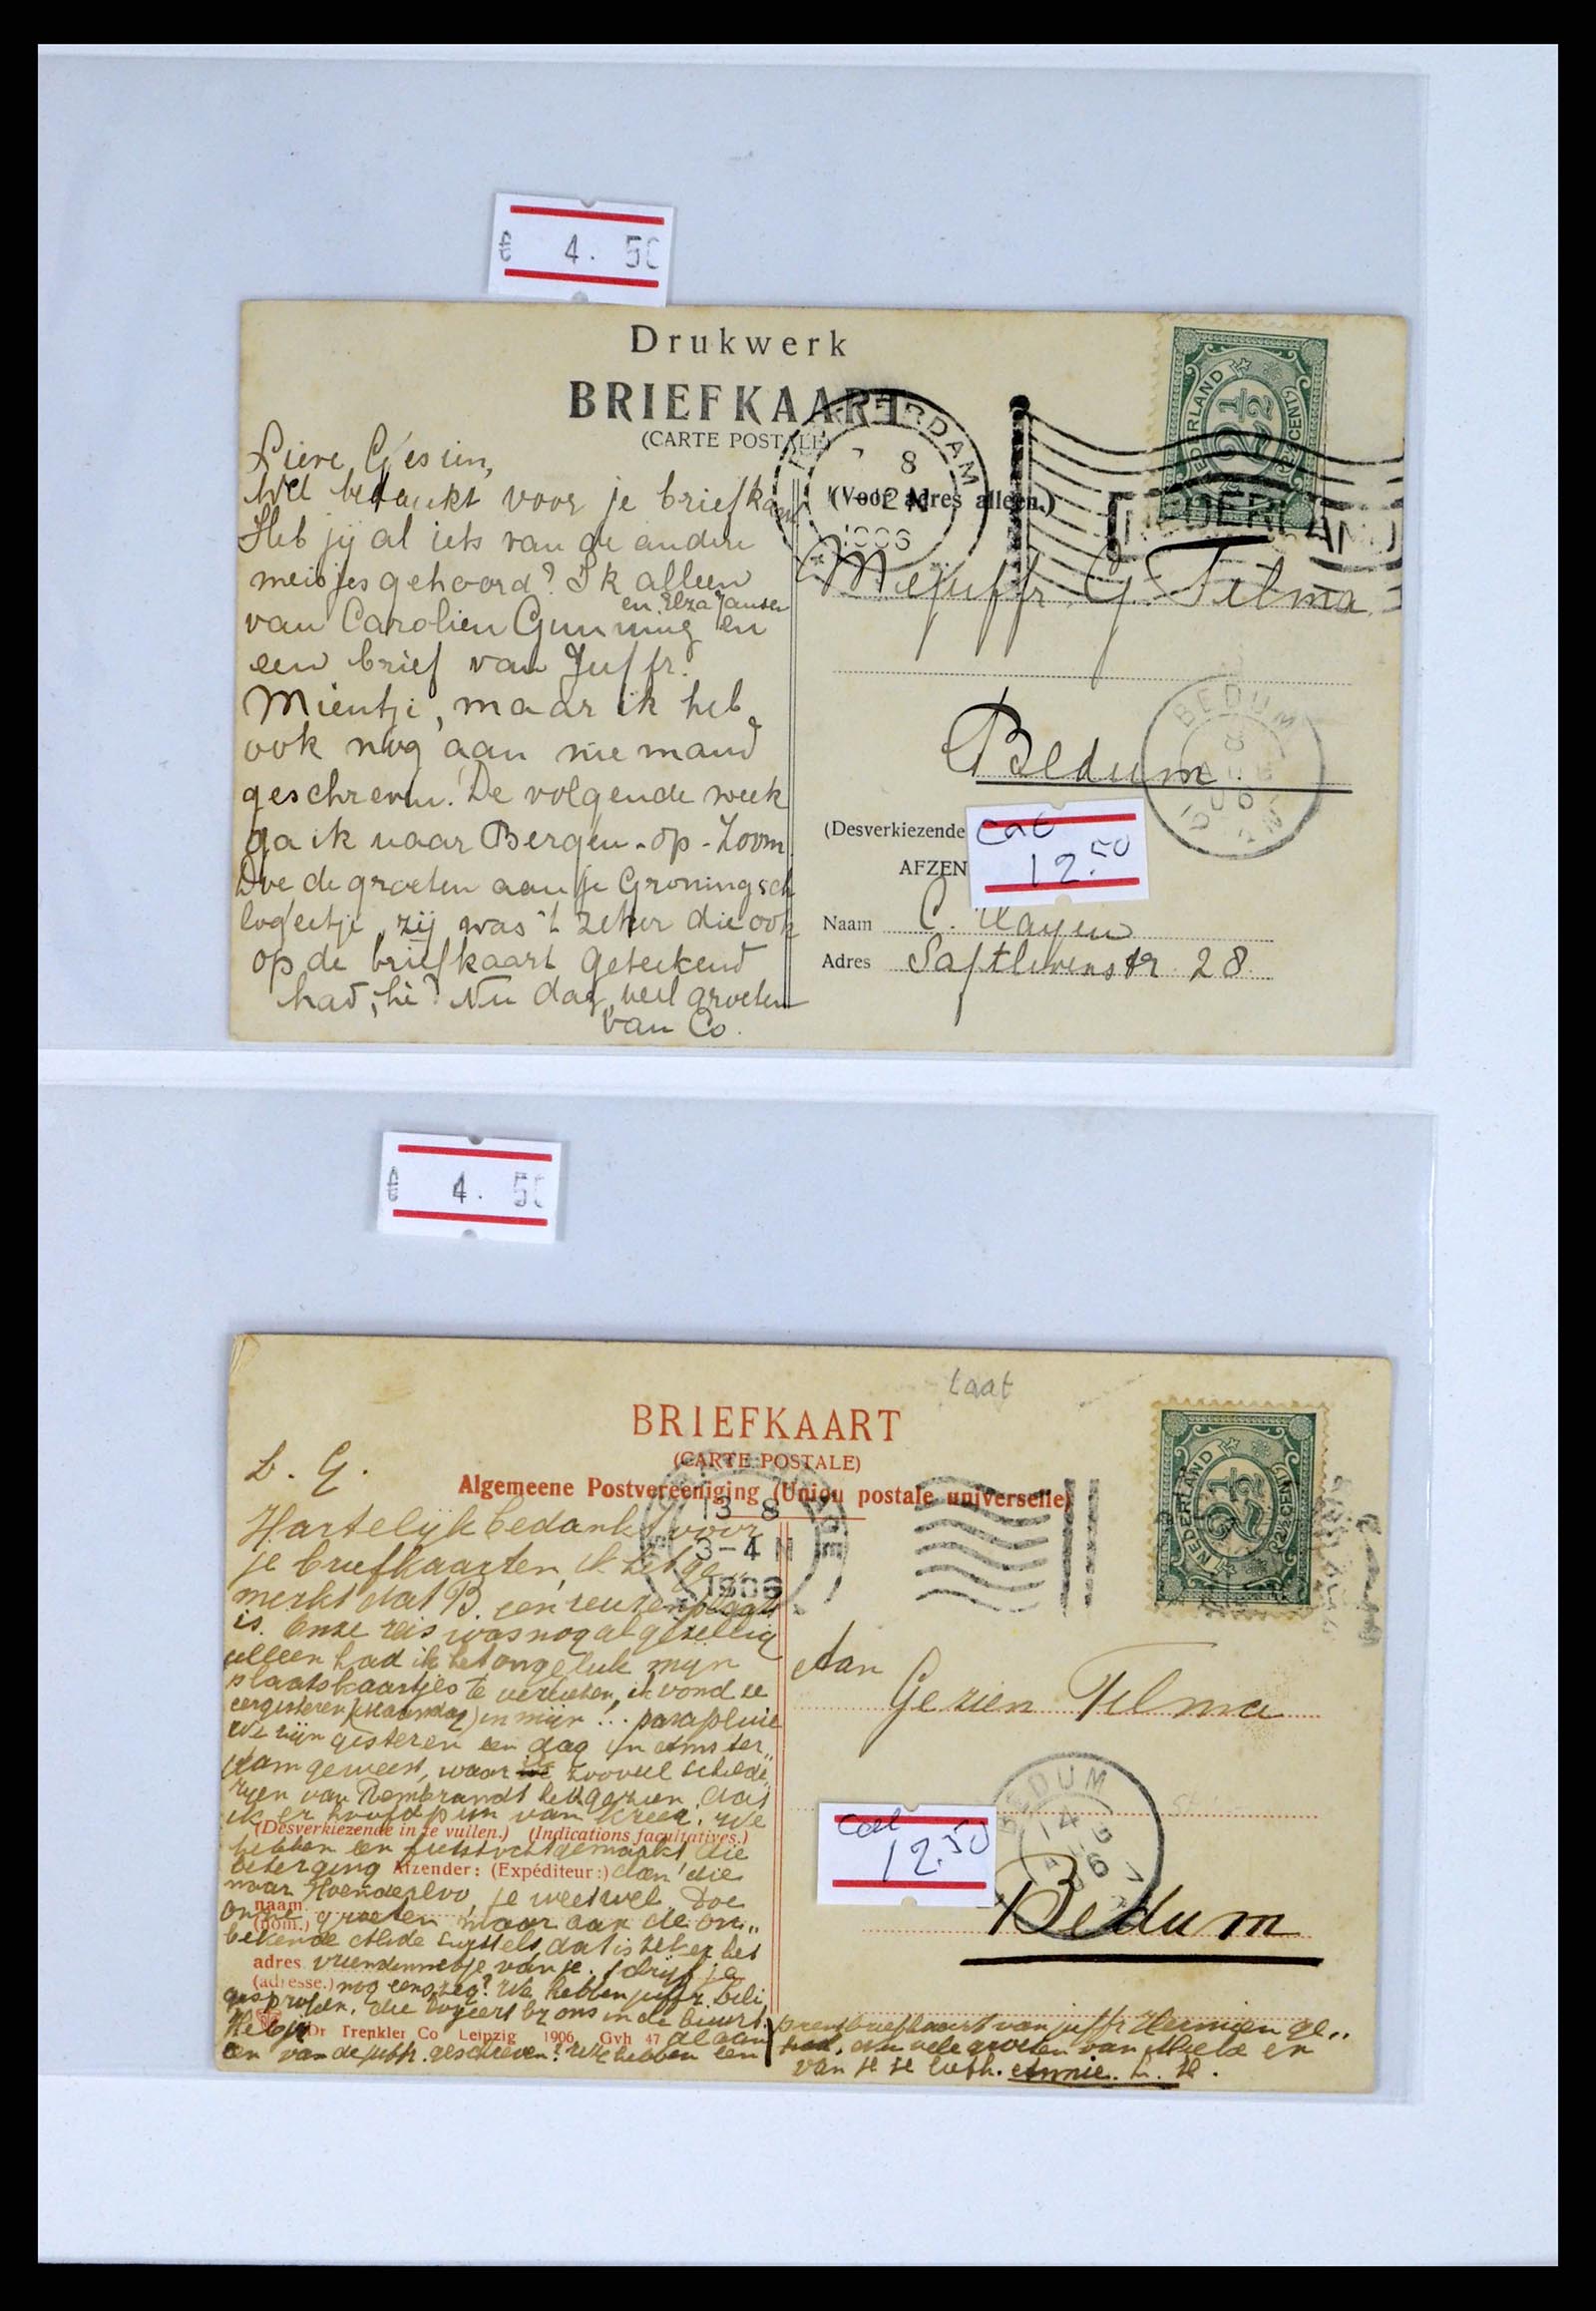 € 4. 50
Drukwerk
BRIEFKAART
(CARTE POSTALE)
Lieve Gesien,
Wel bedankt voor je briefkaart
Heb jij al iets van de andere
meisjes gehoord? Ik alleen
en Elza Jansen
van Carolien Gunning en
een brief van Juffr.
Mientje, maar ik heb
ook nog aan niemand
geschreven. De volgende week
ga ik naar Bergen-op-Zoom.
Doe de groeten aan je Groningsch
logeetje, zij was 't zeker die ook
op de briefkaart geteekend
had, hè? Nu dag, veel groeten
van Co.
8
2 N
1906
(Voor adres alleen.)
NEDERLAND
2½
NEDERLAND
Mejuffr. G. Tilma
Bedum
BEDUM
(Desverkiezende
AFZEN
cat
12.50
Naam
Adres Saftlevenstr 28.
€ 4. 50
Laat
BRIEFKAART
(CARTE POSTALE)
Algemeene Postvereeniging (Union postale universelle)
13 8
3-4 N
1906
NEDERLAND
2½
L. G.
Hartelijk bedankt voor
je briefkaarten, ik heb ge„
merkt dat B. een reuzenplaats
is. Onze reis was nog al gezellig
alleen had ik het ongeluk mijn
plaatskaartjes te verliezen, ik vond ze
eergisteren (Maandag) in mijn!.. parapluie
We zijn gisteren een dag in Amster„
dam geweest, waar zooveel schilde„
rijen van Rembrandt heb gezien, dat
ik er hoofdpijn van kreeg. We
(Desverkiezende in te vullen.) (Indications facultatives.)
hebben een fietstocht gemaakt die
beter ging dan die
Afzender: (Expéditeur:)
naar Hoenderloo, je weet wel. Doe
naam
(nom.)
onze groeten maar aan de on„
bekende dat is zeker het
adres
vriendinnetje van je. Schrijf je
(adresse.)
nog eens, zeg? We hebben juffr. Beli
gesproken, die logeert bij ons in de buurt.
Heb je al aan
Dr Trenkler Co Leipzig 1906 Gvh 47
een van de juffr. geschreven? We hebben een
prentbriefkaart van juffr. Hermien ge„
had. Nu vele groeten van en
van je je liefh. Annie. L. H.
Aan
Gezien Tilma
Bedum
BEDUM
14
cat
12.50